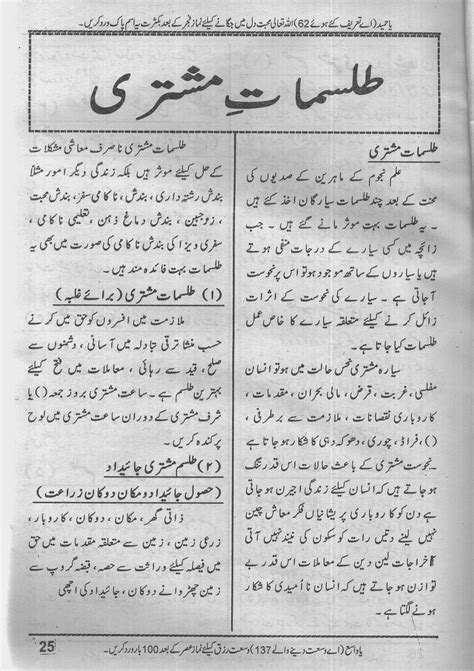 یا حمید (اے تعریف کئے ہوئے 62) اللہ تعالٰی محبت دل میں جگانے کیلئے نماز فجر کے بعد بکثرت یہ اسم پاک ورد کریں۔
طلسماتِ مشتری
طلسمات مشتری
علم نجوم کے ماہرین نے صدیوں کی
محنت کے بعد چند طلسمات سیارگان اخذ کئے ہیں
۔ یہ طلسمات بہت موثر مانے گئے ہیں۔ جب
زائچہ میں کسی سیارے کے درجات منفی ہوتے
ہیں یا سیاروں کے ساتھ موجود ہو تو اس پر نحوست
آ جاتی ہے ۔ سیارے کی نحوست کے اثرات
زائل کرنے کیلئے متعلقہ سیارے کا خاص عمل
طلسمات کیا جاتا ہے۔
سیارہ مشتری نحس حالت میں ہو تو انسان
مفلسی، غربت ، قرض ، مالی بحران ، مقدمات ،
کاروباری نقصانات ، ملازمت سے برطرفی ،
)، فراڈ ، چوری ، دھوکہ دہی کا شکار ہو جاتا ہے
نحوست مشتری کے باعث حالات اس قدر تنگ
ہو جاتے ہیں کہ انسان کیلئے زندگی اجیرن ہو جاتی ہے
دن کو کاروباری پریشانیاں فکر معاش چین
نہیں لینے دیتیں رات کو سکون کی نیند نہیں آتی
اخراجات لین دین کے معاملات اس قدر
بڑھ جاتے ہیں۔ کہ انسان نا اُمیدی کا شکار
ہونے لگتا ہے۔
طلسمات مشتری نا صرف معاشی مشکلات
کے حل کیلئے موثر ہیں بلکہ زندگی دیگر امور مثلاً
بندش رشتہ داری ، بندش ناکامی سفر ، بندش محبت
، زوجین ، بندش دماغ ذہن ، تعلیمی ناکامی ،
سفری ویزا کی بندش ناکامی کی صورت میں بھی یہ
طلسمات بہت فائدہ مند ہیں ۔
(۱) طلسمات مشتری (برائے غلبہ)
ملازمت میں افسروں کو حق میں کرنے ،
حسب منشا ترقی تبادلہ میں آسانی ، دشمنوں سے
صلح ، قید سے رہائی ، معاملات میں فتح کیلئے
بہترین طلسم ہے۔ ساعت مشتری بروز جمعہ () یا
شرف مشتری کے دوران ساعت مشتری میں لوح
پر کندہ کریں۔
(۲) طلسم مشتری جائیداد
(حصول جائیداد و مکان دوکان زراعت)
ذاتی گھر ، مکان ، دوکان ، کاروبار ،
زرعی زمین ، زمین سے متعلقہ مقدمات میں حق
میں فیصلہ کیلئے وراثت سے حصہ، قبضہ گروپ سے
زمین چھڑوانے دوکان ، جائیداد کی اچھی
یا واسع (اے وسعت دینے والے 137) وسعت رزق کیلئے نماز عصر کے بعد 100 بار ورد کریں۔
25